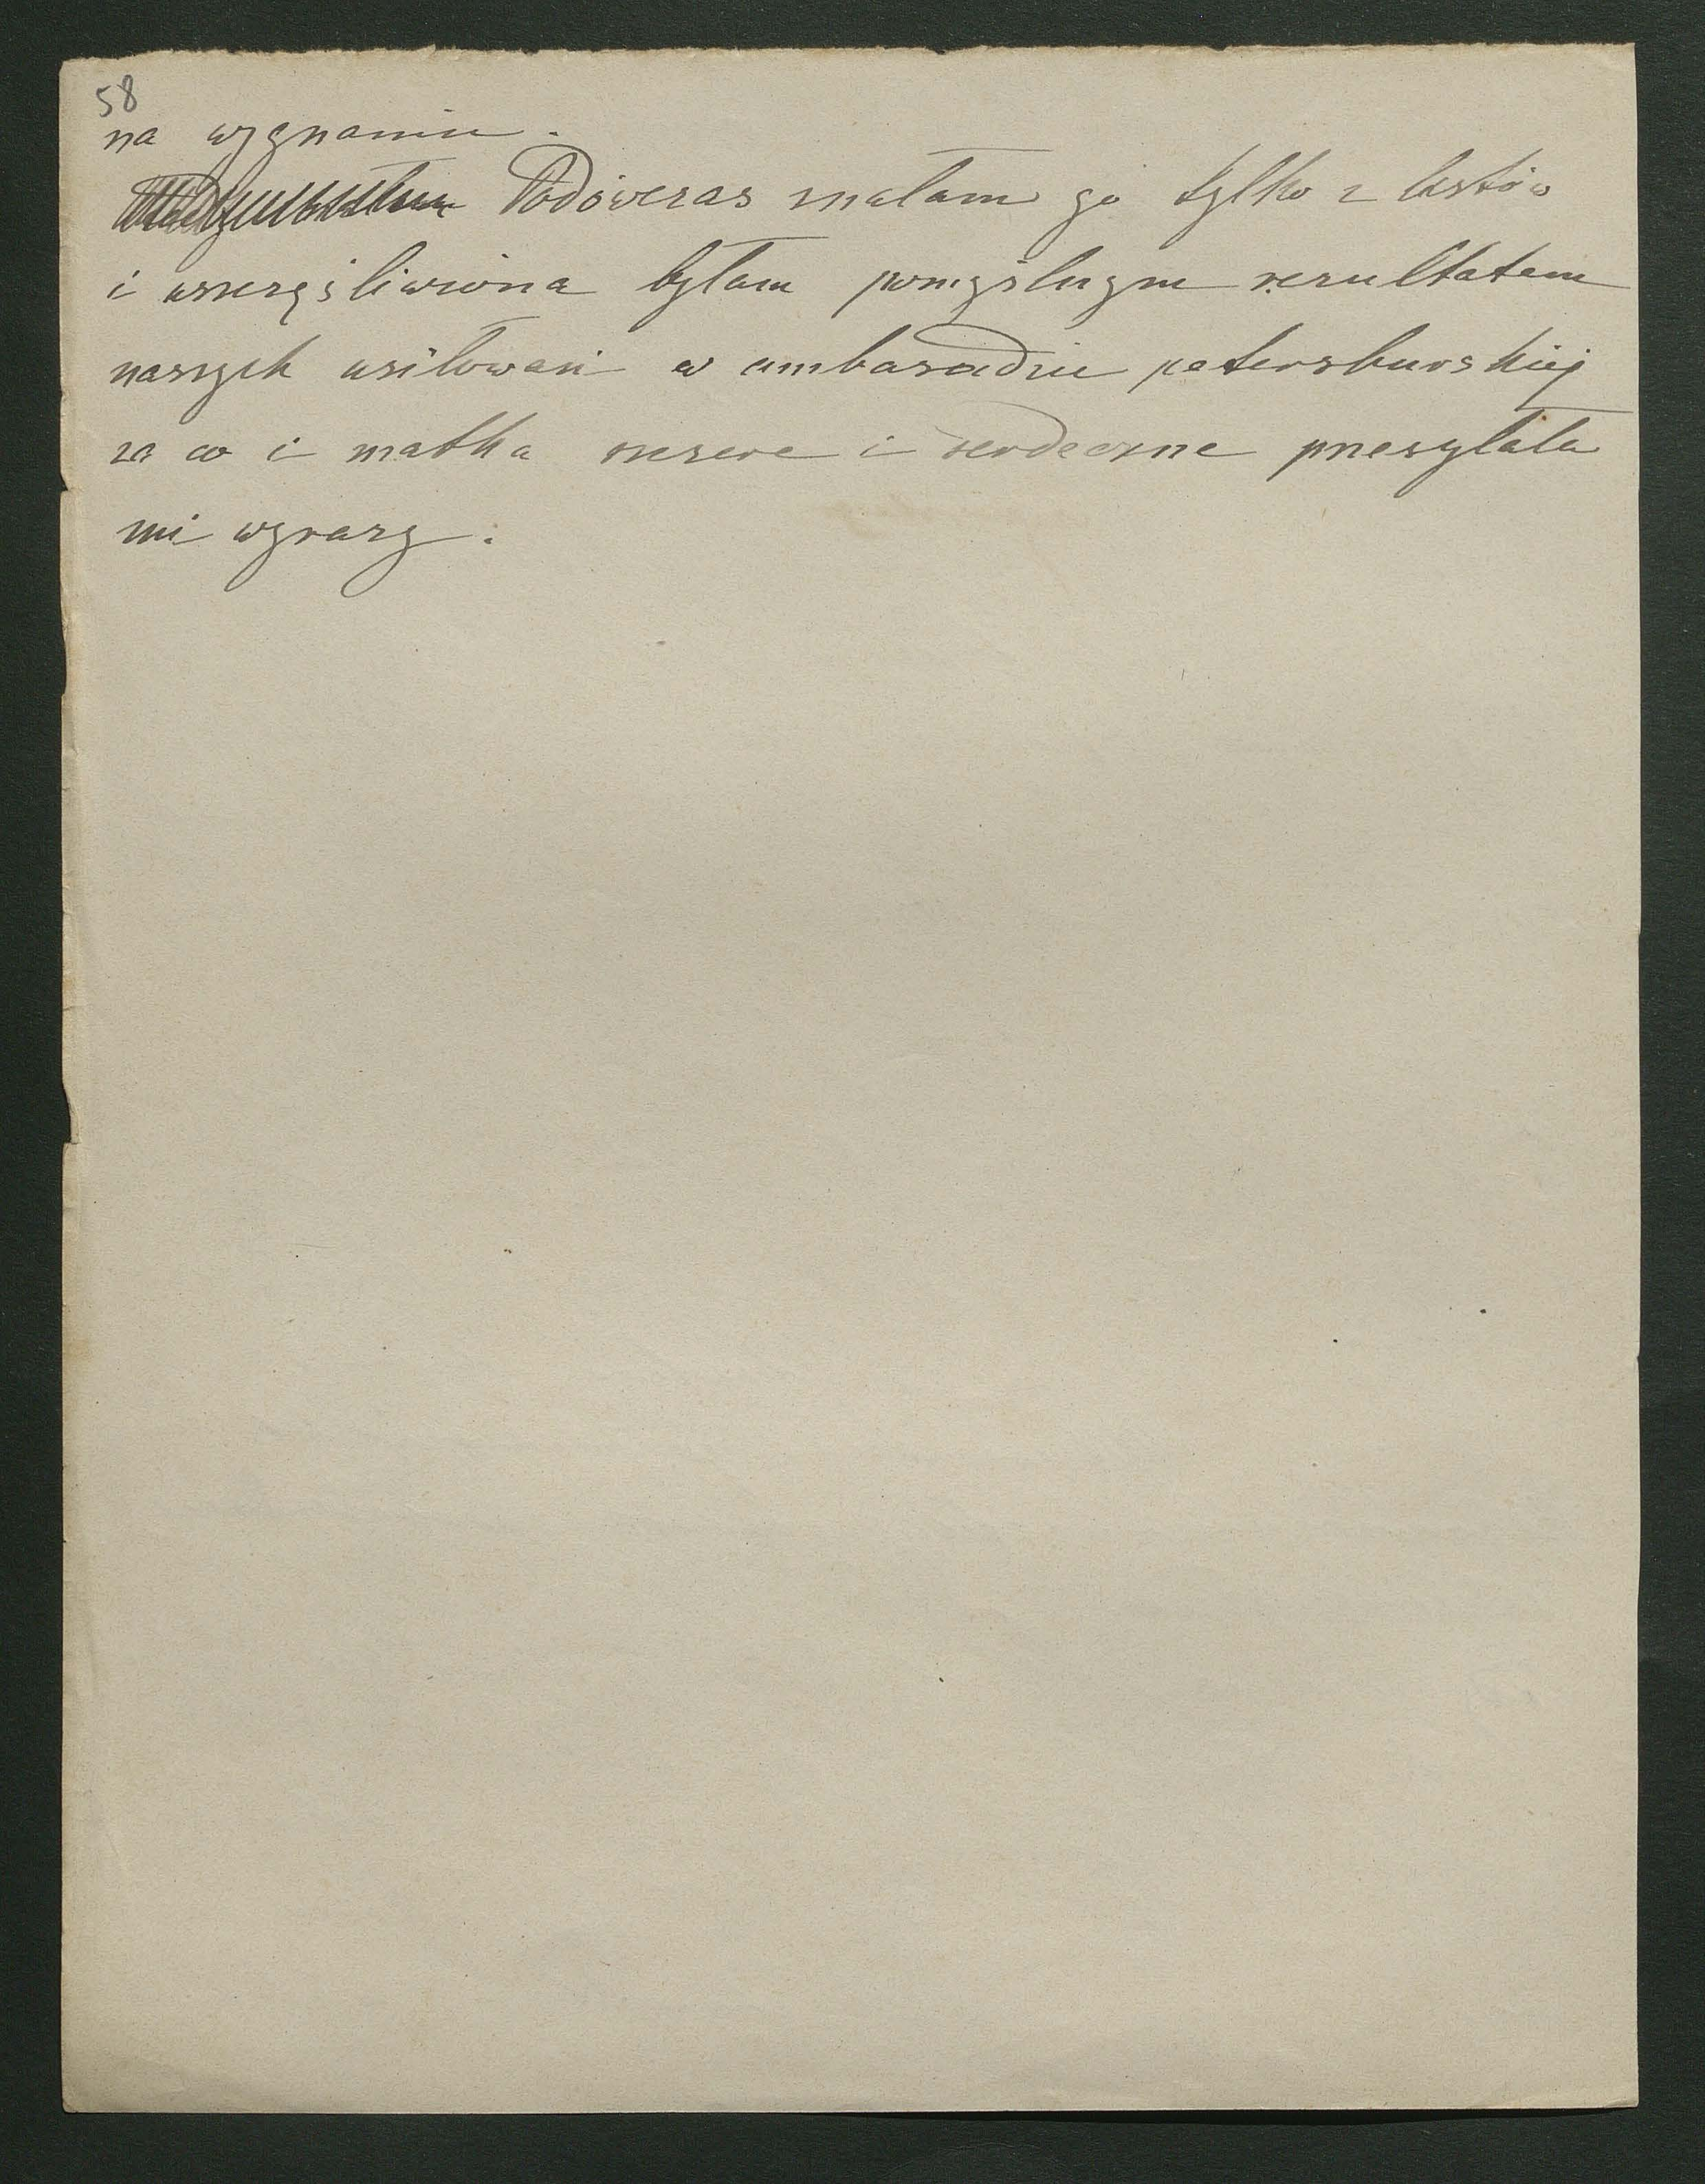 58
na wygnaniu.
Podówczas znałam go tylko z listów
i uszczęśliwiona byłam pomyślnym rezultatem
naszych usiłowań w ambasadzie petersburskiej
za co i matka szczere i serdeczne przesyłała
mi wyrazy.